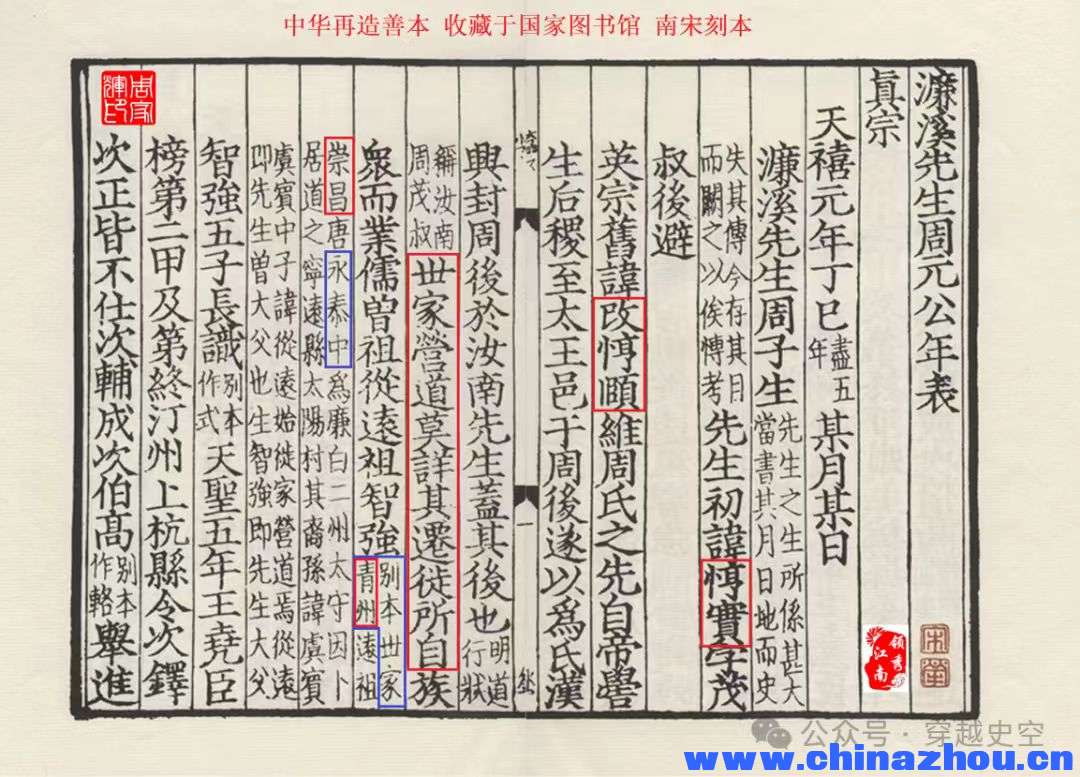 中华再造善本 收藏于国家图书馆 南宋刻本
濂溪先生周元公年表
眞宗
天禧元年丁巳盡五年某月某日
濂溪先生周子生先生之生所係甚大當書其月日地而史
失其傳今存其目而闕之以俟愽考先生初諱惇實字茂
叔後避
英宗舊諱改惇頤維周氏之先自帝嚳
生后稷至太王邑于周後遂以爲氏漢
一
興封周後於汝南先生蓋其後也明道行狀
稱汝南周茂叔世家營道莫詳其遷徙所自族
衆而業儒曽祖從遠祖智強別本世家青州遠祖
崇昌唐永泰中爲廉白二州太守因卜居道之寧遠縣太陽村其裔孫諱虞賓
虞賓中子諱從遠始徙家營道焉從遠即先生曾大父也生智強即先生大父
智強五子長識別本作式天聖五年王堯臣
榜第二甲及第終汀州上杭縣令次鐸
坎正皆不仕次輔成次伯高別本作輅舉進
周家
輝印
领秀
江南
公众号·穿越史空
www.chinazhou.cn